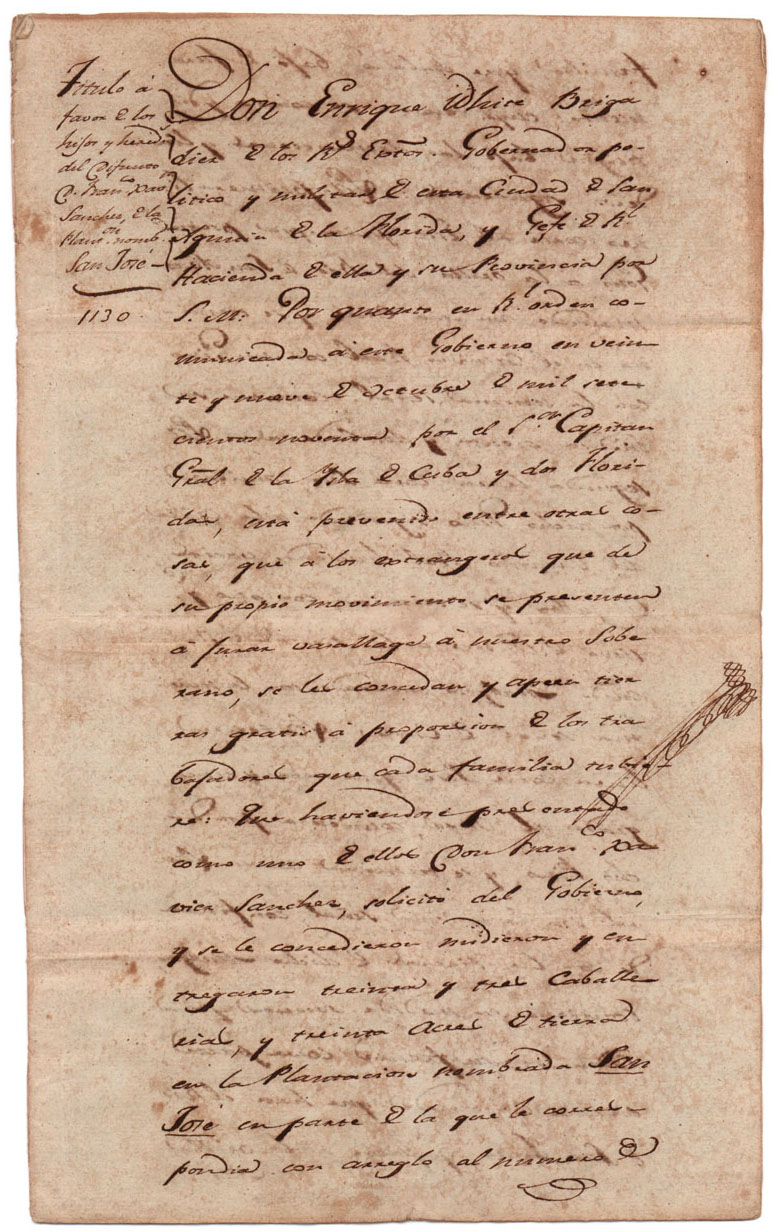 Titulo á
favor D los
hijos y hered
del Difunto
D. Franco Xavr
Sanchez, D la
Planon nomb.
San José
1130.
Don Enrique White Briga
dier D los Rs Extos. Gobernador po-
litico y militar D esta Ciudad D San
Agustin D la Florida, y Gefe D Rl
Hacienda D ella y su Provincia por
S. M. Por quanto en Rl orden co-
municada á este Gobierno en vein
te y nueve D Octubre D mil sete
cientos noventa por el Sor Capitan
Gral D la Ysla D Cuba y dos Flori-
das, está prevenido entre otras co-
sas, que á los extrangeros que de
su propio movimiento se presenten
á jurar vasallage á nuestro Sobe
rano, se les concedan y apeen tier
ras gratis á proporsion D los tra
bajadores que cada familia tubie-
re: Que haviendose presentado
como uno D ellos Don Franco Xa
vier Sanchez, solicitó del Gobierno,
y se le concedieron midieron y en
tregaron treinta y tres Caballe
rias, y treinta Acres D tierra
en la Plantacion nombrada San
José en parte D la que le corres-
pondia con arreglo al numero D